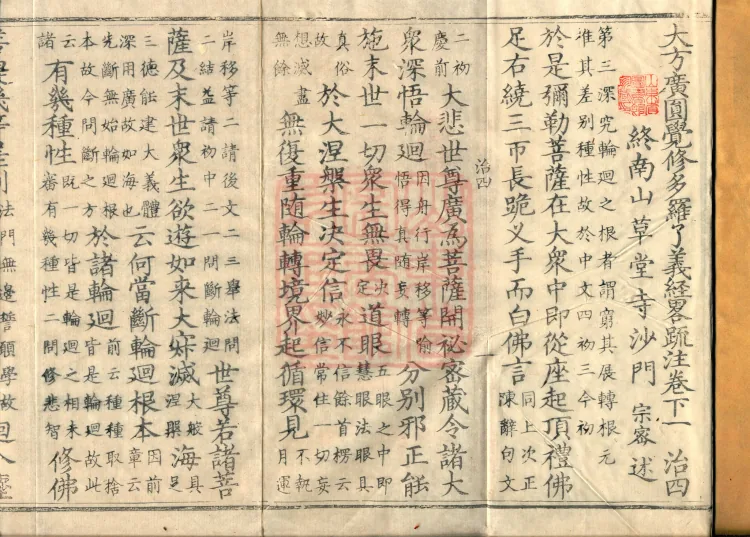 大方廣圓覺修多羅了義經畧䟽注卷下一 治四
終南山草堂寺沙門 宗密 述
第三深究輪迴之根者謂窮其展轉根元
准其差别種性故於中文四初三今初
於是彌勒菩薩在大衆中即從座起頂禮佛
足右繞三帀長跪义手而白佛言同上次正陳辭句文
二初慶前大悲世尊廣爲菩薩開祕密藏令諸大
治四
一
衆深悟輪迴因舟行岸移等喻悟得真随妄轉分别邪正能
施末世一切衆生無畏决定道眼五眼之中即慧眼法眼具
真俗故於大涅槃生决定信永不信餘首楞云妙信常住一切妄
想滅盡無餘無復重随輪轉境界起循環見不執月運
岸移等二請後文二三舉法問
二結益請初中二一問斷輪迴世尊若諸菩
薩及末世衆生欲遊如来大寂滅海大般涅槃具足
三德能建大義體深用廣故如海也云何當斷輪迴根本因前章云
先斷無始輪迴根本故今問斷之方於諸輪迴前云種種取捨皆是輪迴故此
云諸有幾種性既一切皆是輪迴之相未審有幾種性二問修悲智修佛